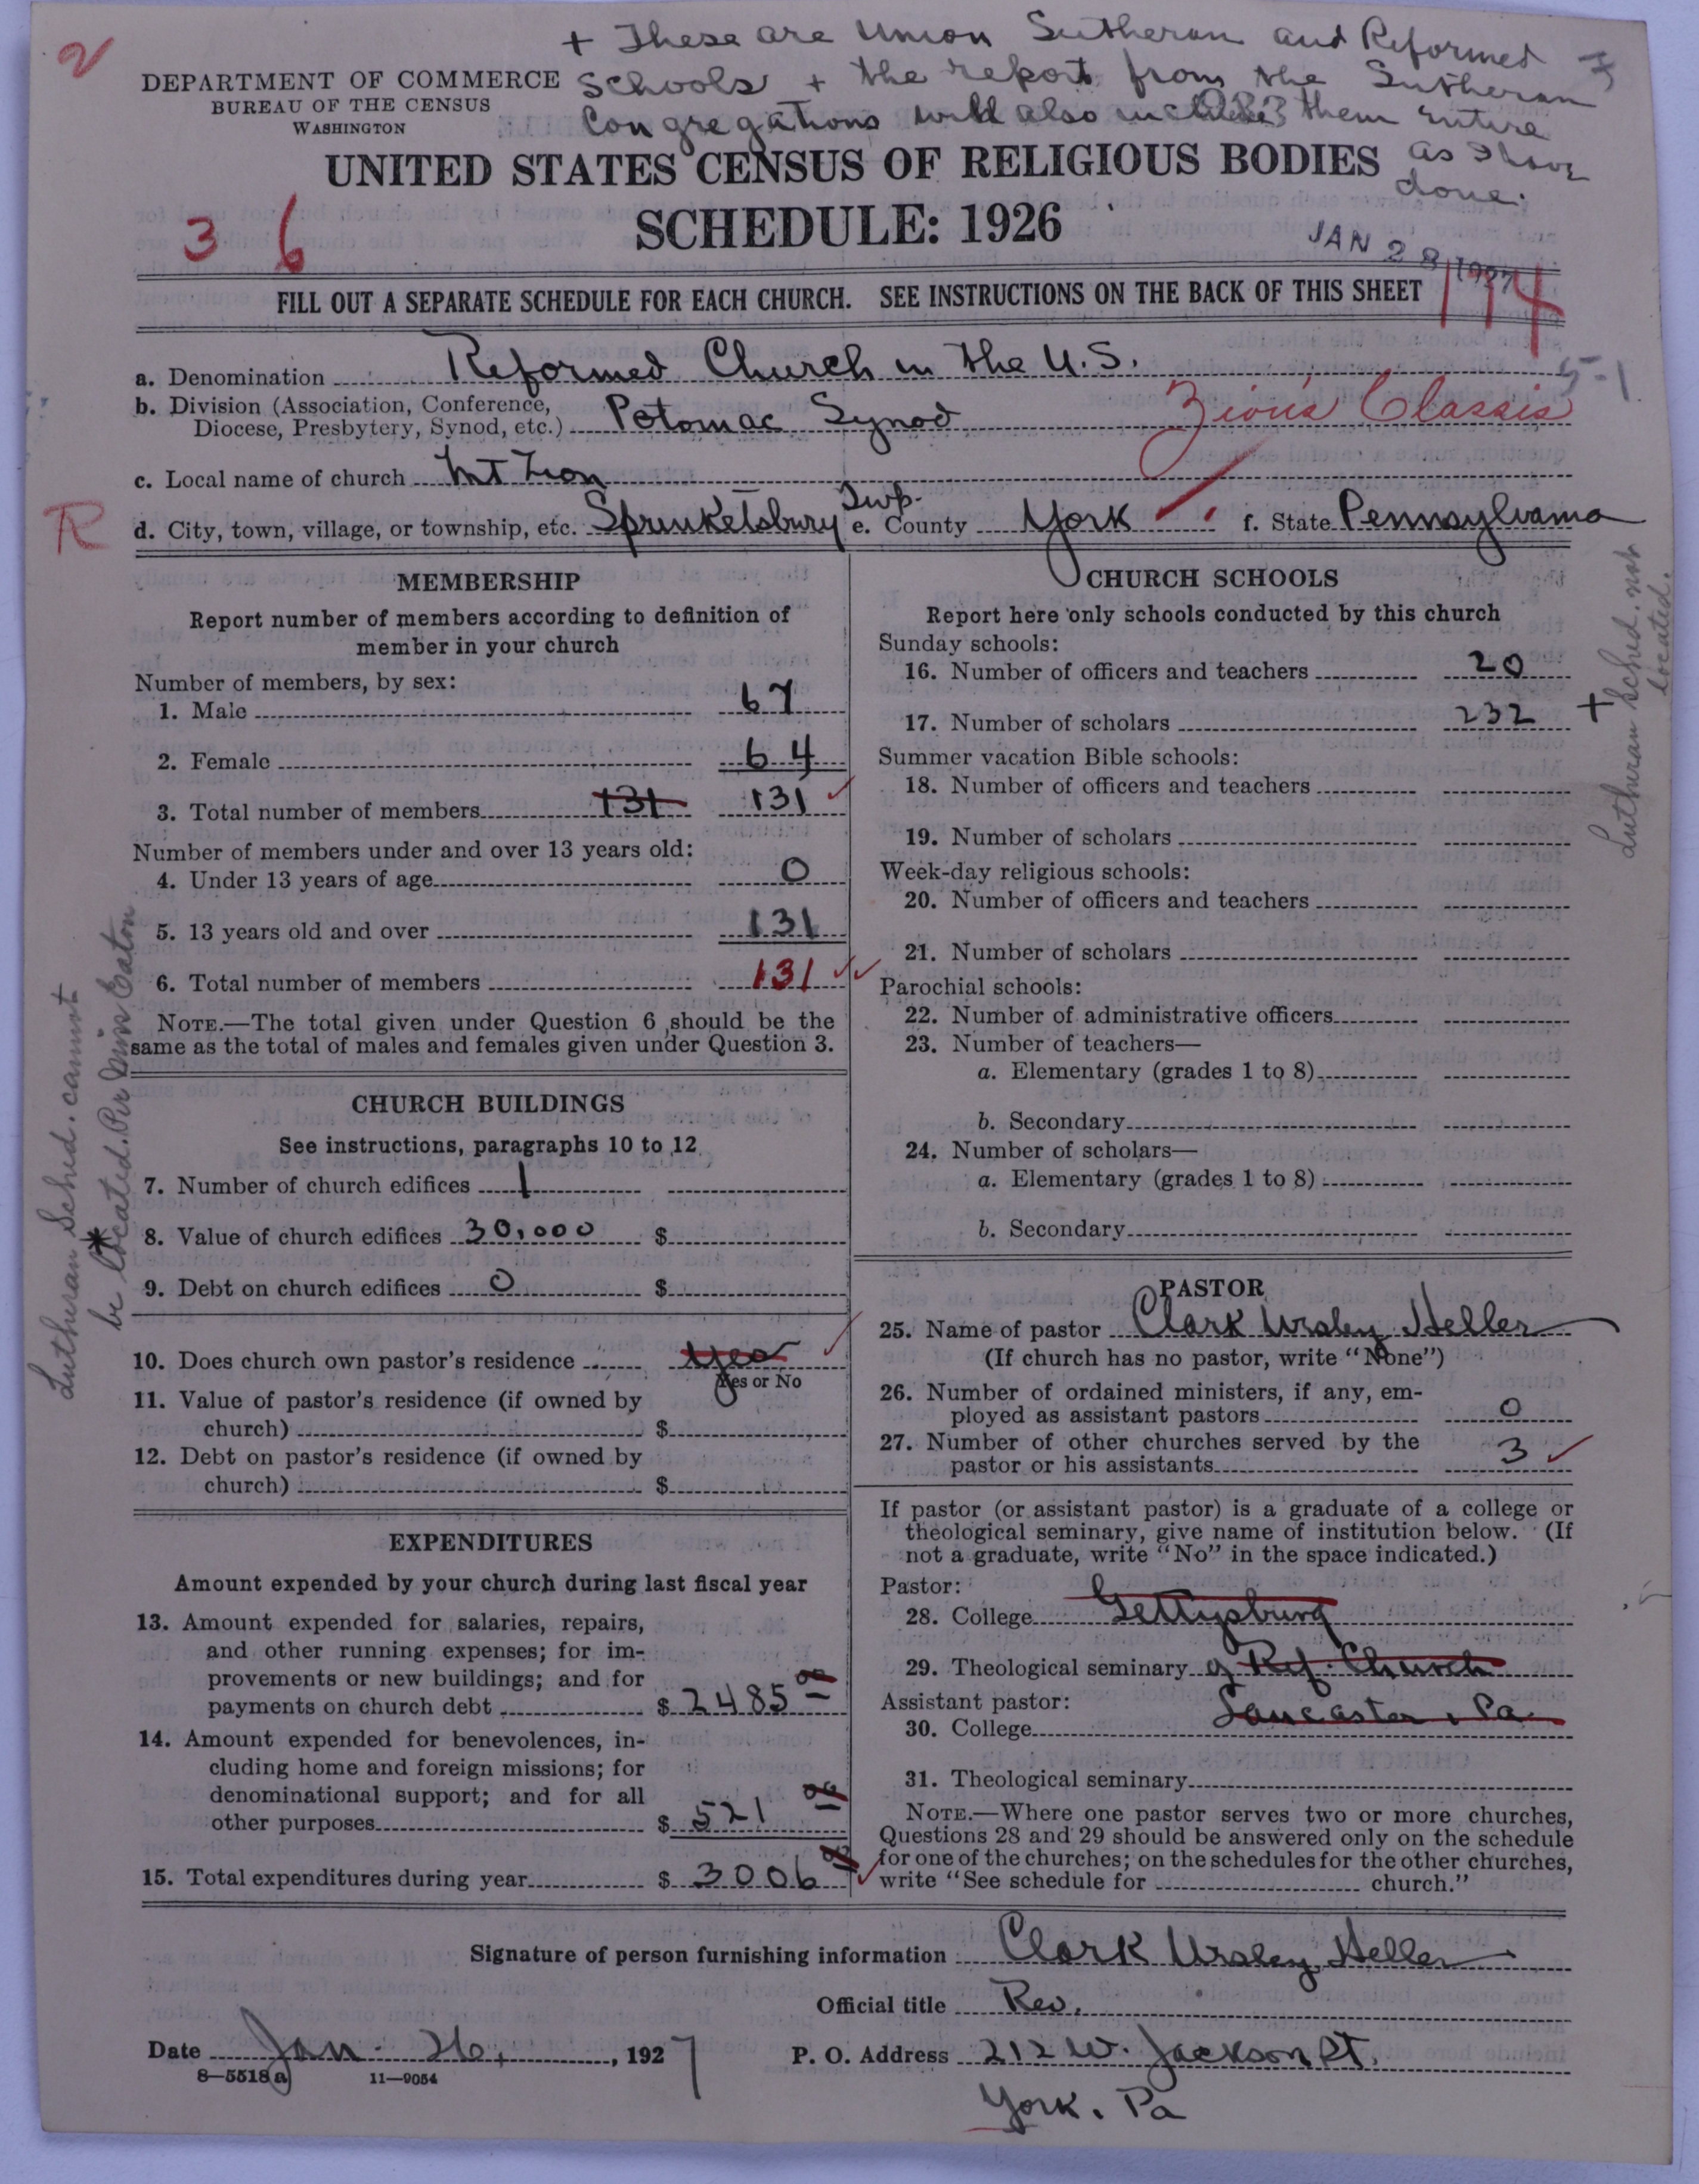 2
+ These are Union Lutheran and Reformed
Schools + the report from the Lutheran
Congregations will also include them entire
as I have
done.
DEPARTMENT OF COMMERCE
BUREAU OF THE CENSUS
WASHINGTON
UNITED STATES CENSUS OF RELIGIOUS BODIES
SCHEDULE: 1926
3 6
JAN 28 1927
114
FILL OUT A SEPARATE SCHEDULE FOR EACH CHURCH. SEE INSTRUCTIONS ON THE BACK OF THIS SHEET
a. Denomination Reformed Church in the U.S.
5-1
b. Division (Association, Conference,
Diocese, Presbytery, Synod, etc.) Potomac Synod Zion's Classis
c. Local name of church Mt Zion
R
d. City, town, village, or township, etc. Sprinketsbury Twp. e. County York f. State Pennsylvania
MEMBERSHIP
Report number of members according to definition of
member in your church
Number of members, by sex:
1. Male 67
2. Female 64
3. Total number of members 131 131
Number of members under and over 13 years old:
4. Under 13 years of age 0
5. 13 years old and over 131
6. Total number of members 131
NOTE.—The total given under Question 6 should be the
same as the total of males and females given under Question 3.
CHURCH BUILDINGS
See instructions, paragraphs 10 to 12
7. Number of church edifices 1
8. Value of church edifices 30,000 $
9. Debt on church edifices 0 $
10. Does church own pastor's residence yes
Yes or No
11. Value of pastor's residence (if owned by
church) $
12. Debt on pastor's residence (if owned by
church) $
Lutheran Sched. cannot
be located. Per Miss Eaton
*
EXPENDITURES
Amount expended by your church during last fiscal year
13. Amount expended for salaries, repairs,
and other running expenses; for im-
provements or new buildings; and for
payments on church debt $ 2485 00
14. Amount expended for benevolences, in-
cluding home and foreign missions; for
denominational support; and for all
other purposes $ 521 00
15. Total expenditures during year $ 3006 00
CHURCH SCHOOLS
Report here only schools conducted by this church
Sunday schools:
16. Number of officers and teachers 20
17. Number of scholars 232 +
Summer vacation Bible schools:
18. Number of officers and teachers
19. Number of scholars
Week-day religious schools:
20. Number of officers and teachers
21. Number of scholars
Parochial schools:
22. Number of administrative officers
23. Number of teachers—
a. Elementary (grades 1 to 8)
b. Secondary
24. Number of scholars—
a. Elementary (grades 1 to 8)
b. Secondary
Lutheran Sched. not
located.
PASTOR
25. Name of pastor Clark Wesley Heller
(If church has no pastor, write "None")
26. Number of ordained ministers, if any, em-
ployed as assistant pastors 0
27. Number of other churches served by the
pastor or his assistants 3
If pastor (or assistant pastor) is a graduate of a college or
theological seminary, give name of institution below. (If
not a graduate, write "No" in the space indicated.)
Pastor:
28. College Gettysburg
29. Theological seminary of Ref. Church
Assistant pastor: Lancaster, Pa.
30. College
31. Theological seminary
NOTE.—Where one pastor serves two or more churches,
Questions 28 and 29 should be answered only on the schedule
for one of the churches; on the schedules for the other churches,
write "See schedule for church."
Signature of person furnishing information Clark Wesley Heller
Official title Rev.
Date Jan. 26, 1927 P. O. Address 212 W. Jackson St.
8—5518 a 11—9054
York, Pa